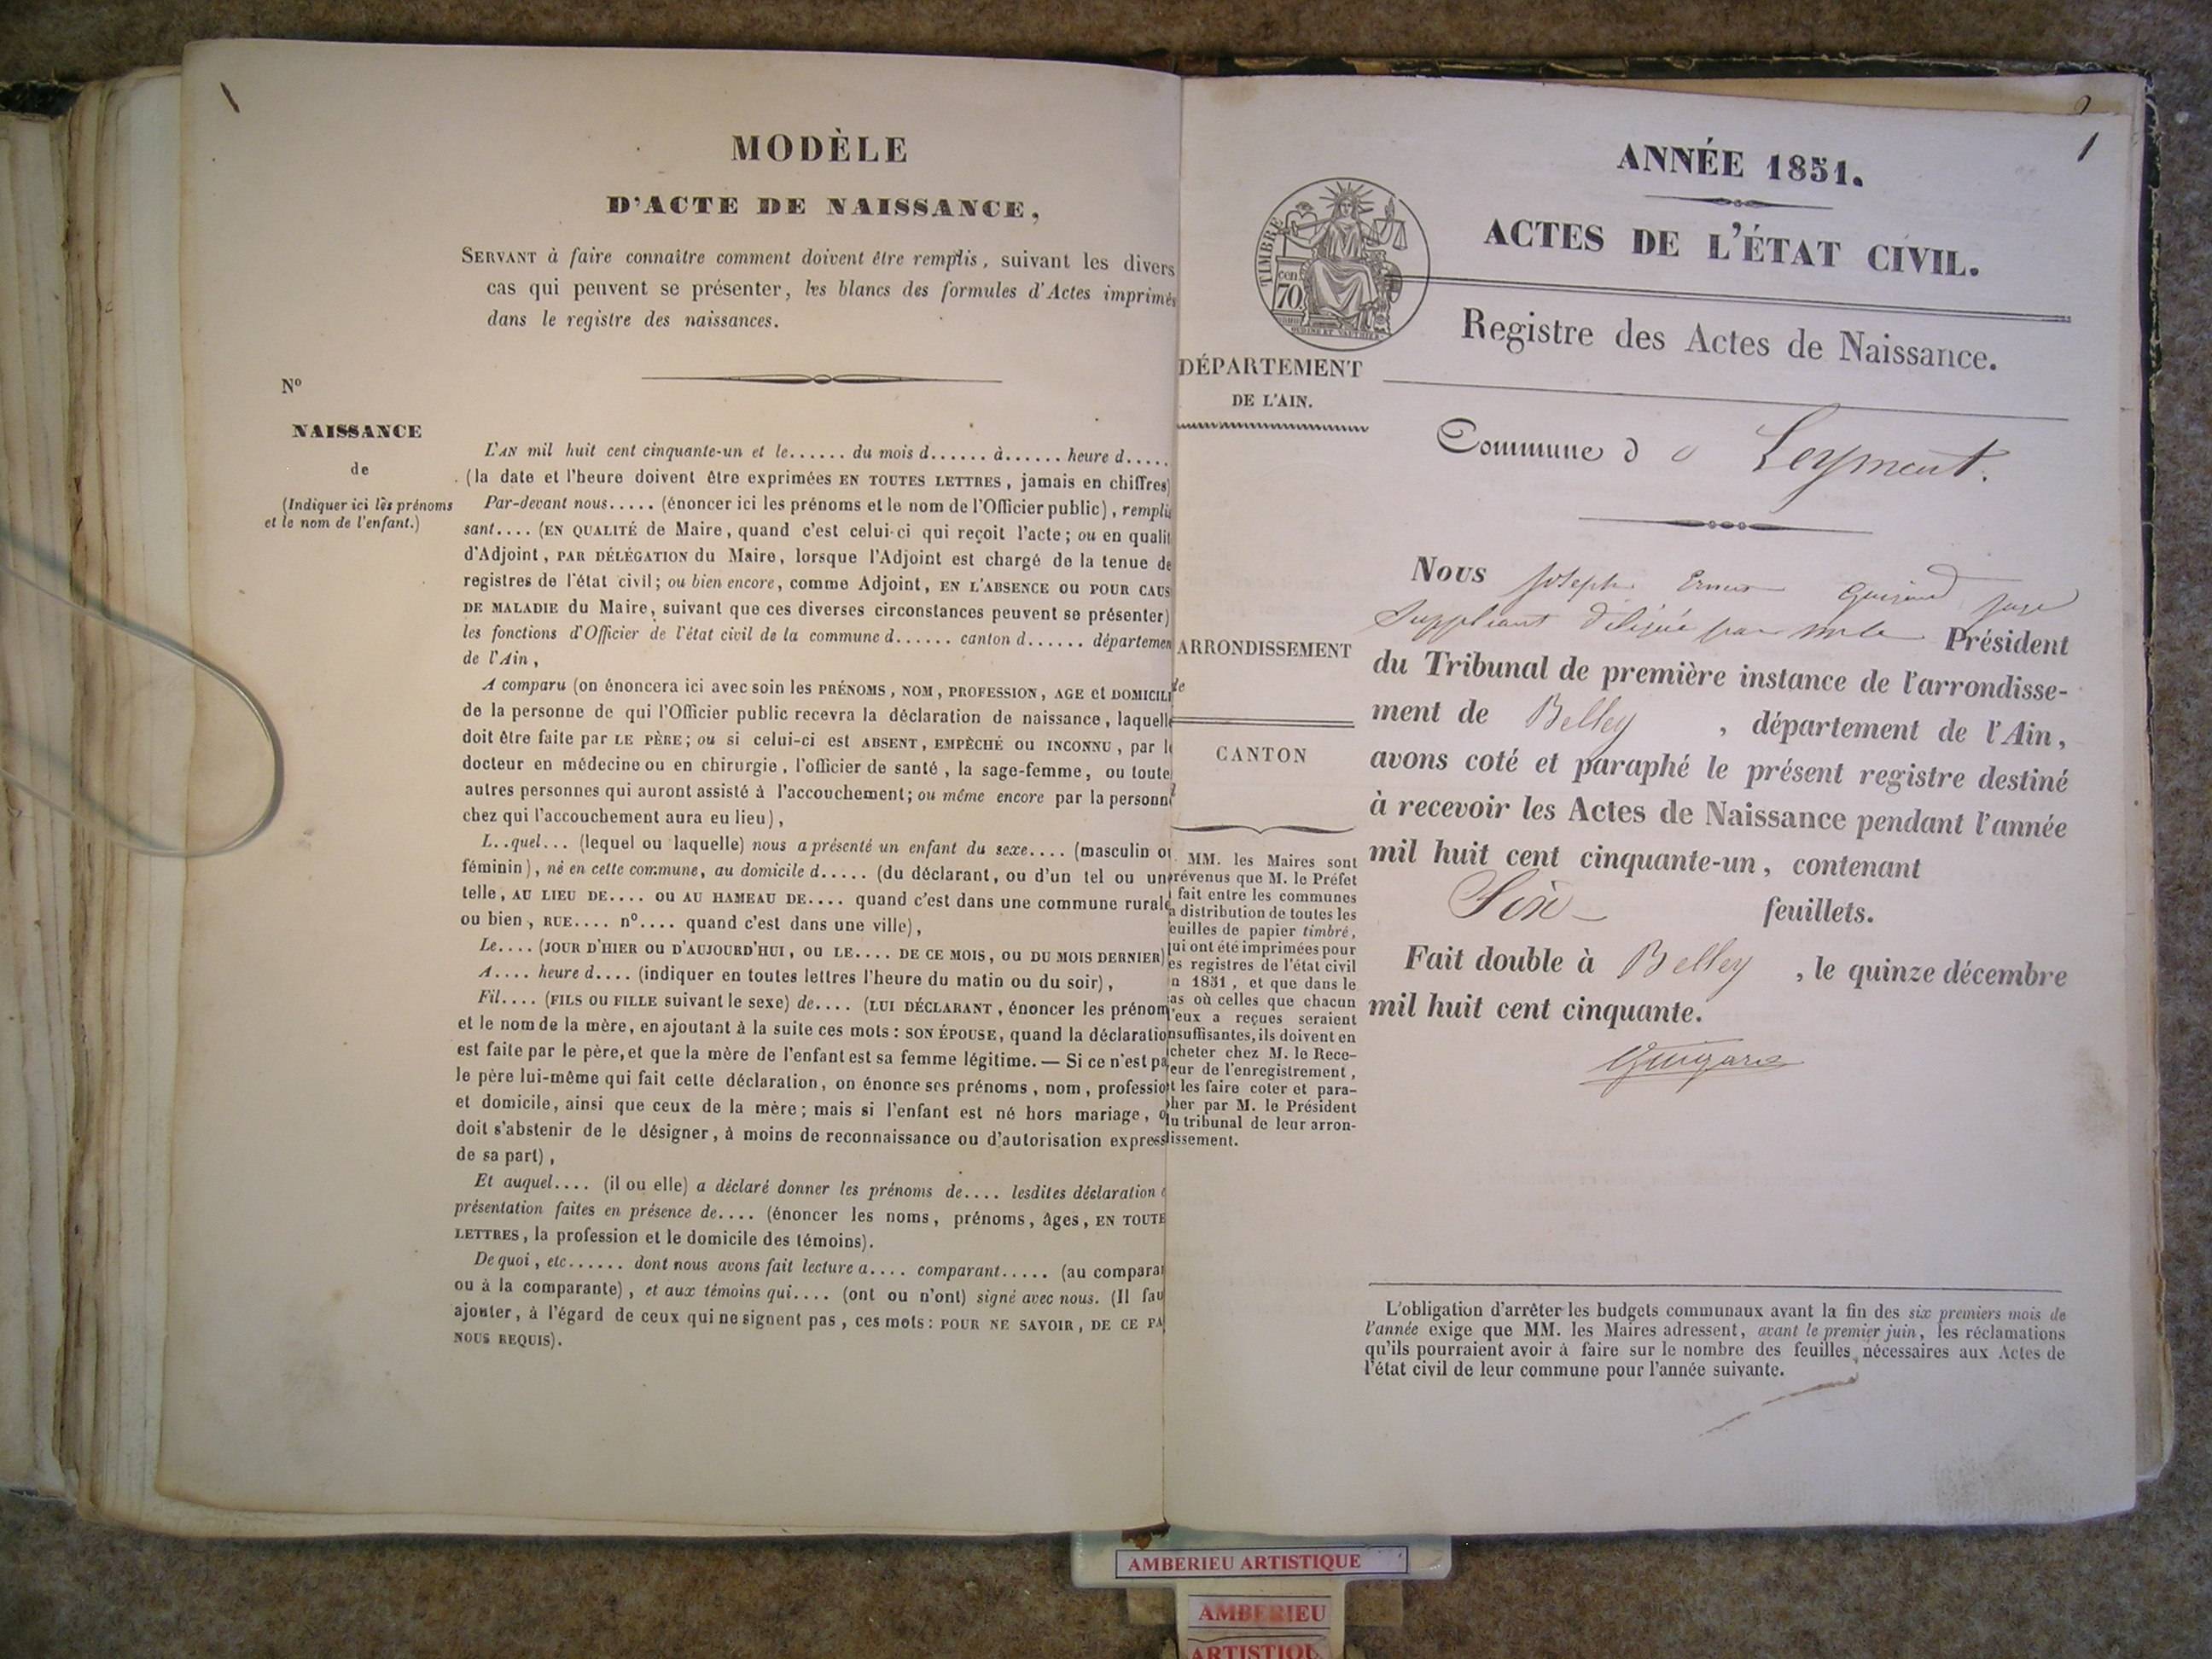 MODÈLE
D'ACTE DE NAISSANCE,
SERVANT à faire connaître comment doivent être remplis, suivant les divers
cas qui peuvent se présenter, les blancs des formules d'Actes imprimés
dans le registre des naissances.
Nº
NAISSANCE
de
(Indiquer ici les prénoms
et le nom de l'enfant.)
L'AN mil huit cent cinquante-un et le...... du mois d...... à...... heure d.....
(la date et l'heure doivent être exprimées EN TOUTES LETTRES, jamais en chiffres)
Par-devant nous..... (énoncer ici les prénoms et le nom de l'Officier public), remplis
sant.... (EN QUALITÉ de Maire, quand c'est celui-ci qui reçoit l'acte; ou en qualit
d'Adjoint, PAR DÉLÉGATION du Maire, lorsque l'Adjoint est chargé de la tenue de
registres de l'état civil; ou bien encore, comme Adjoint, EN L'ABSENCE OU POUR CAUS
DE MALADIE du Maire, suivant que ces diverses circonstances peuvent se présenter)
les fonctions d'Officier de l'état civil de la commune d...... canton d...... départemen
de l'Ain,
A comparu (on énoncera ici avec soin les PRÉNOMS, NOM, PROFESSION, AGE et DOMICILE
de la personne de qui l'Officier public recevra la déclaration de naissance, laquelle
doit être faite par LE PÈRE; ou si celui-ci est ABSENT, EMPÊCHÉ OU INCONNU, par le
docteur en médecine ou en chirurgie, l'officier de santé, la sage-femme, ou toute
autres personnes qui auront assisté à l'accouchement; ou même encore par la personn
chez qui l'accouchement aura eu lieu),
L..quel... (lequel ou laquelle) nous a présenté un enfant du sexe.... (masculin ou
féminin), né en cette commune, au domicile d..... (du déclarant, ou d'un tel ou une
telle, AU LIEU DE.... OU AU HAMEAU DE.... quand c'est dans une commune rurale
ou bien, RUE.... nº.... quand c'est dans une ville),
Le.... (JOUR D'HIER OU D'AUJOURD'HUI, OU LE.... DE CE MOIS, OU DU MOIS DERNIER)
A.... heure d.... (indiquer en toutes lettres l'heure du matin ou du soir),
Fil.... (FILS OU FILLE suivant le sexe) de.... (LUI DÉCLARANT, énoncer les prénom
et le nom de la mère, en ajoutant à la suite ces mots: SON ÉPOUSE, quand la déclaration
est faite par le père, et que la mère de l'enfant est sa femme légitime. — Si ce n'est pa
le père lui-même qui fait cette déclaration, on énonce ses prénoms, nom, profession
et domicile, ainsi que ceux de la mère; mais si l'enfant est né hors mariage, o
doit s'abstenir de le désigner, à moins de reconnaissance ou d'autorisation express
de sa part),
Et auquel.... (il ou elle) a déclaré donner les prénoms de.... lesdites déclaration e
présentation faites en présence de.... (énoncer les noms, prénoms, âges, EN TOUTE
LETTRES, la profession et le domicile des témoins).
De quoi, etc...... dont nous avons fait lecture a.... comparant..... (au comparan
ou à la comparante), et aux témoins qui.... (ont ou n'ont) signé avec nous. (Il fau
ajouter, à l'égard de ceux qui ne signent pas, ces mots: POUR NE SAVOIR, DE CE PA
NOUS REQUIS).
1
ANNÉE 1851.
ACTES DE L'ÉTAT CIVIL.
TIMBRE
cen
70
Registre des Actes de Naissance.
DÉPARTEMENT
DE L'AIN.
Commune d e Leyment.
ARRONDISSEMENT
de
CANTON
MM. les Maires sont
prévenus que M. le Préfet
fait entre les communes
a distribution de toutes les
euilles de papier timbré,
ui ont été imprimées pour
es registres de l'état civil
n 1851, et que dans le
as où celles que chacun
'eux a reçues seraient
nsuffisantes, ils doivent en
cheter chez M. le Rece-
eur de l'enregistrement,
t les faire coter et para-
her par M. le Président
u tribunal de leur arron-
issement.
Nous Joseph Ernest Guigard juge
Suppléant délégué par Mr le Président
du Tribunal de première instance de l'arrondisse-
ment de Belley, département de l'Ain,
avons coté et paraphé le présent registre destiné
à recevoir les Actes de Naissance pendant l'année
mil huit cent cinquante-un, contenant
Six feuillets.
Fait double à Belley, le quinze décembre
mil huit cent cinquante.
Guigard
L'obligation d'arrêter les budgets communaux avant la fin des six premiers mois de
l'année exige que MM. les Maires adressent, avant le premier juin, les réclamations
qu'ils pourraient avoir à faire sur le nombre des feuilles nécessaires aux Actes de
l'état civil de leur commune pour l'année suivante.
AMBERIEU ARTISTIQUE
AMBERIEU
ARTISTIQU